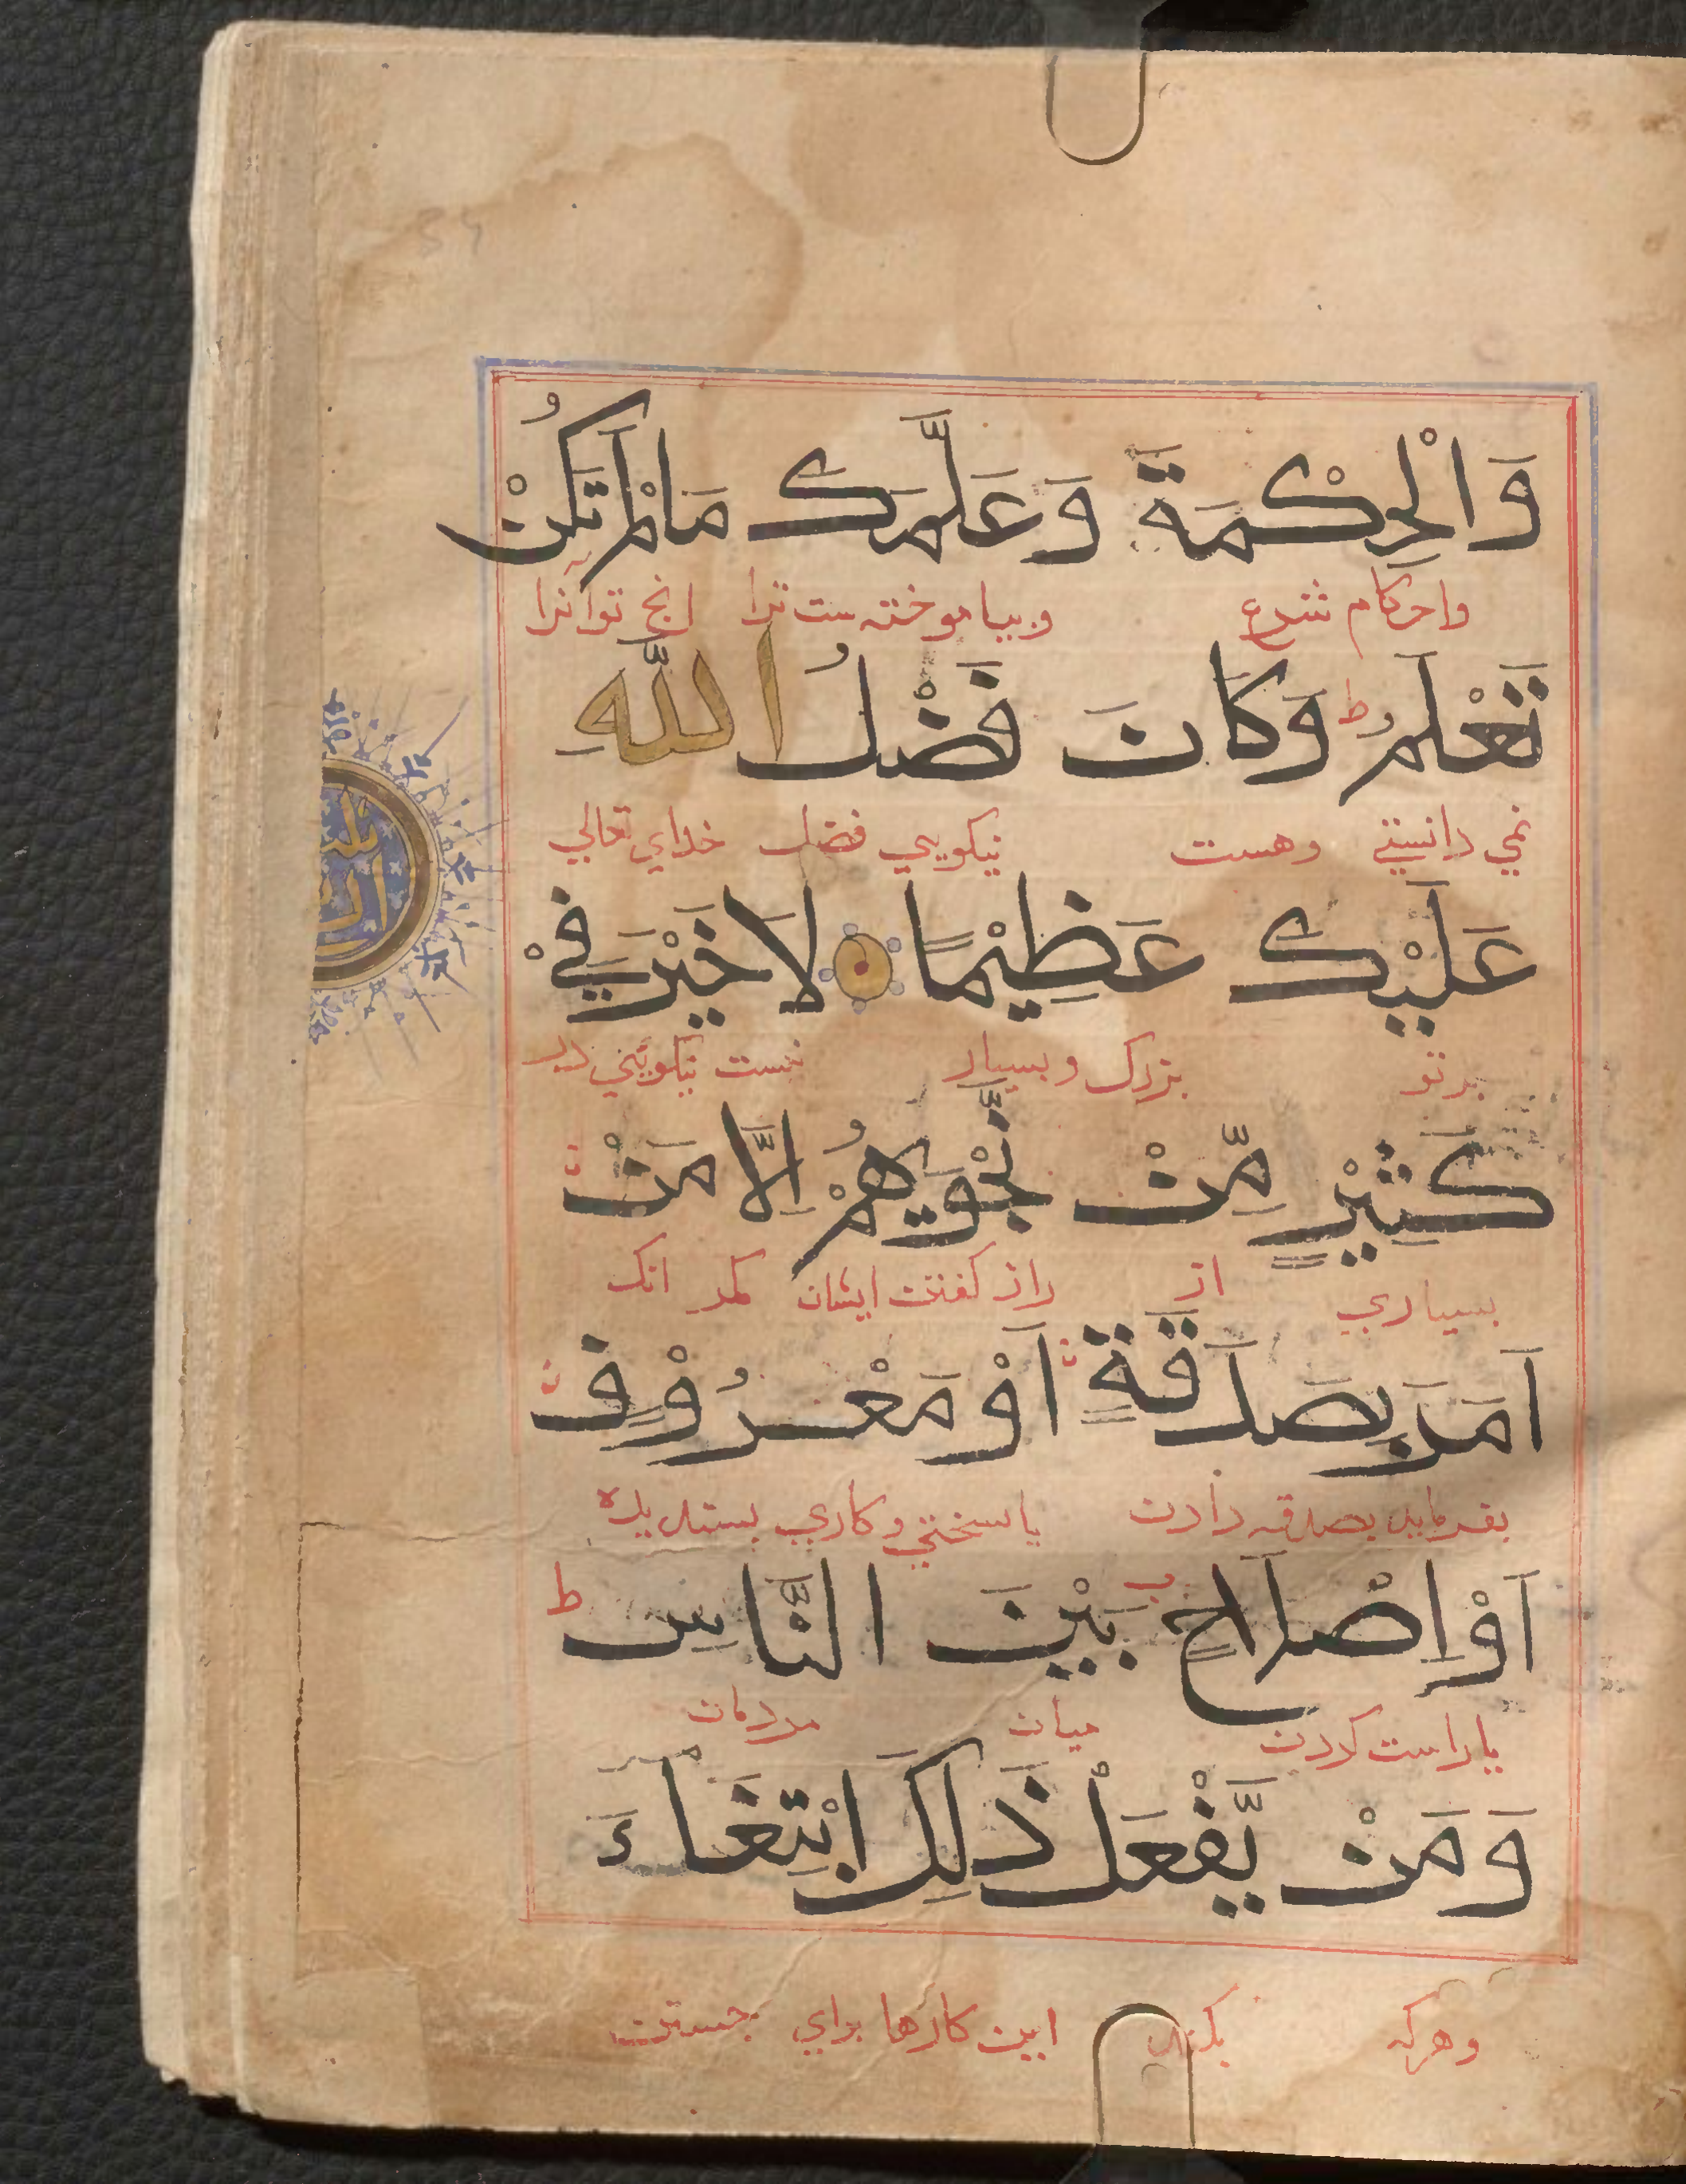 وَالْحِكْمَةَ وَعَلَّمَكَ مَالَمْ تَكُنْ
واحکام شرع وبیاموخته ست ترا انچ توآنرا
تَعْلَمُ ط وَكَانَ فَضْلُ اللّٰهِ
نمی دانستی وهست نیکویی فضل خدای تعالی
عَلَيْكَ عَظِيْمًا لَا خَيْرَ فِيْ
برتو بزرک وبسیار نیست نیکویئی در
كَثِيْرٍ مِّنْ نَّجْوٰىهُمْ اِلَّا مَنْ
بسیاری از راز کفتن ایشان مکر انک
اَمَرَ بِصَدَقَةٍ اَوْ مَعْرُوْفٍ
بفرماید بصدقه دادن یا سخنی وکاری پسندیده
اَوْ اِصْلَاحٍ بَيْنَ النَّاسِ ط
یا راست کردن میان مردمان
وَمَنْ يَّفْعَلْ ذَلِكَ ابْتِغَاءَ
وهرکه بکند این کارها برای جستن